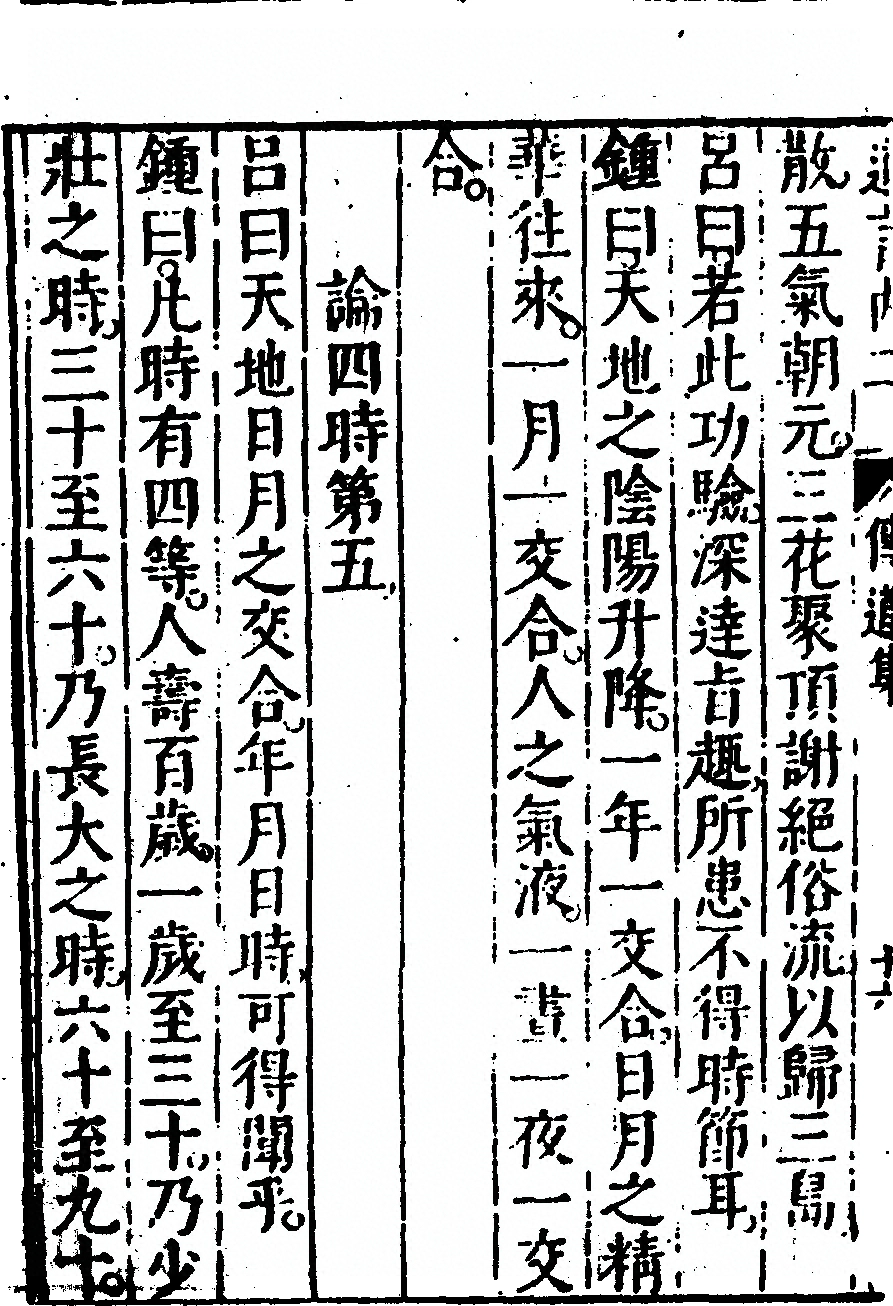 散五氣朝元。三花聚頂謝絕俗流以歸三島
呂曰若此功驗。深達旨趣、所患不得時節耳、
鍾曰、天地之陰陽升降。一年一交合、日月之精
華往來。一月一交合。人之氣液。一晝一夜一交
合。
論四時第五
呂曰天地日月之交合。年月日時、可得聞乎。
鍾曰。凡時有四等。人壽百歲。一歲至三十。乃少
壯之時、三十至六十。乃長大之時、六十至九十。
傳道集
十六